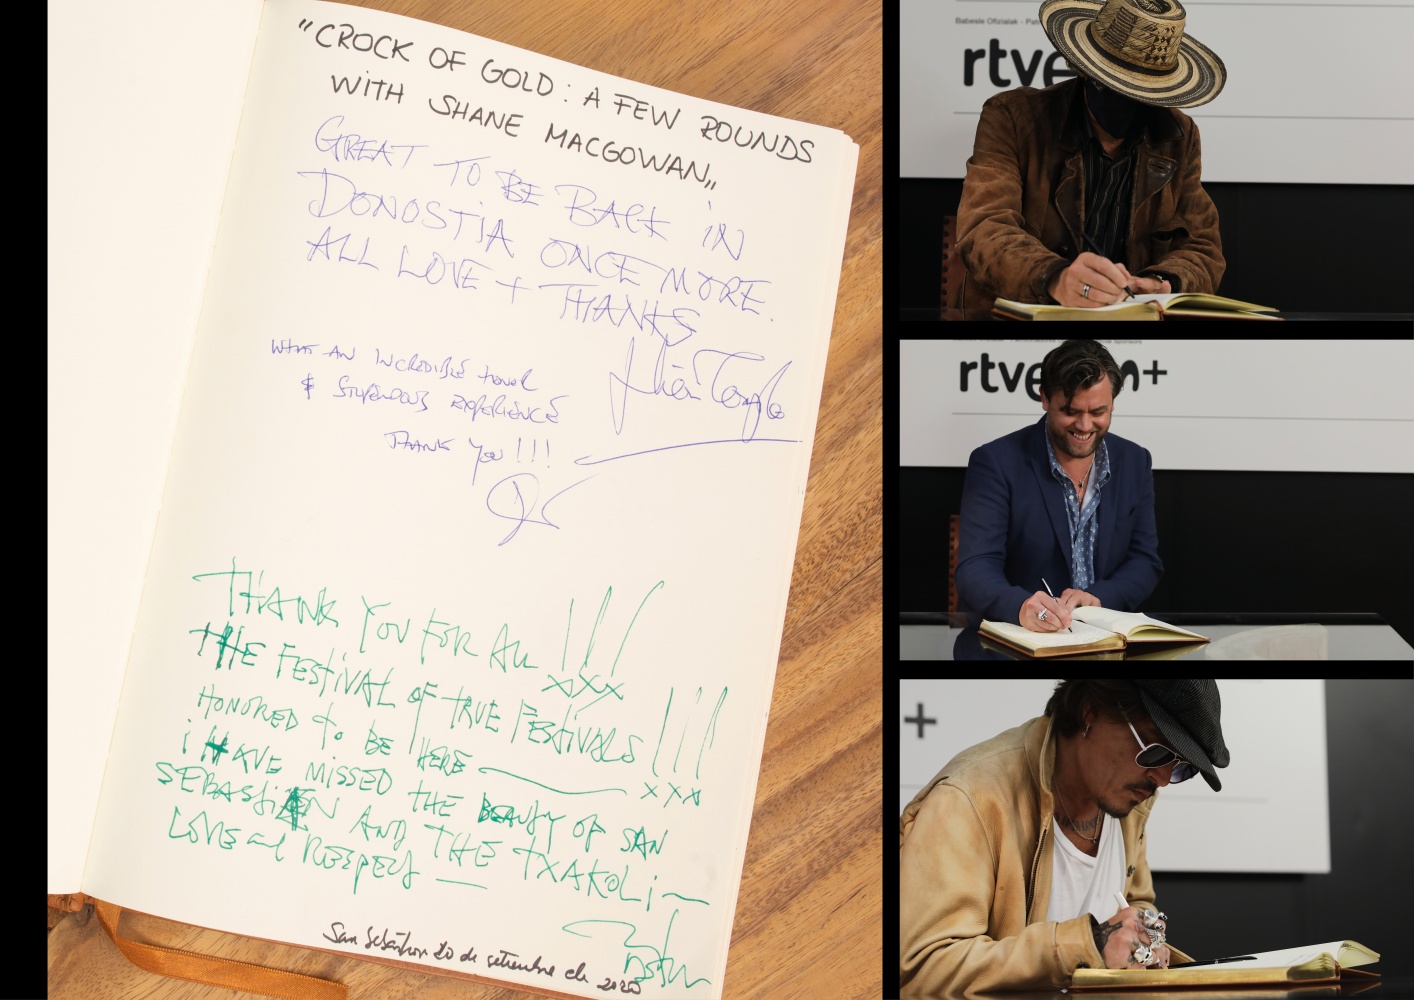 "CROCK OF GOLD: A FEW ROUNDS
WITH SHANE MACGOWAN„
GREAT TO BE BACK IN
DONOSTIA ONCE MORE.
ALL LOVE + THANKS
WHAT AN INCREDIBLE HONOR
& STUPENDOUS EXPERIENCE
THANK YOU!!!
THANK YOU FOR ALL !!!
xxx
THE FESTIVAL OF TRUE FESTIVALS !!!
HONORED to BE HERE —
xxx
i HAVE MISSED THE BEAUTY OF SAN
SEBASTIAN AND THE TXAKOLi —
LOVE and RESPECT —
San Sebastian 20 de setiembre de 2020
Babesle Ofizialak - Pat
rtve
rtve
m+
+